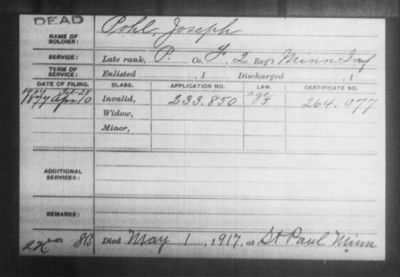 DEAD
NAME OF SOLDIER: Pohl, Joseph
SERVICE: Late rank, P. Co. F, 2 Reg't Minn Inf
TERM OF SERVICE: Enlisted , 1 Discharged , 1
DATE OF FILING. CLASS. APPLICATION NO. LAW. CERTIFICATE NO.
1907
1879 Apr 10 Invalid, 233.850 age 264.977
Widow,
Minor,
ADDITIONAL SERVICES:
REMARKS:
Died May 1, 1917, at St Paul Minn